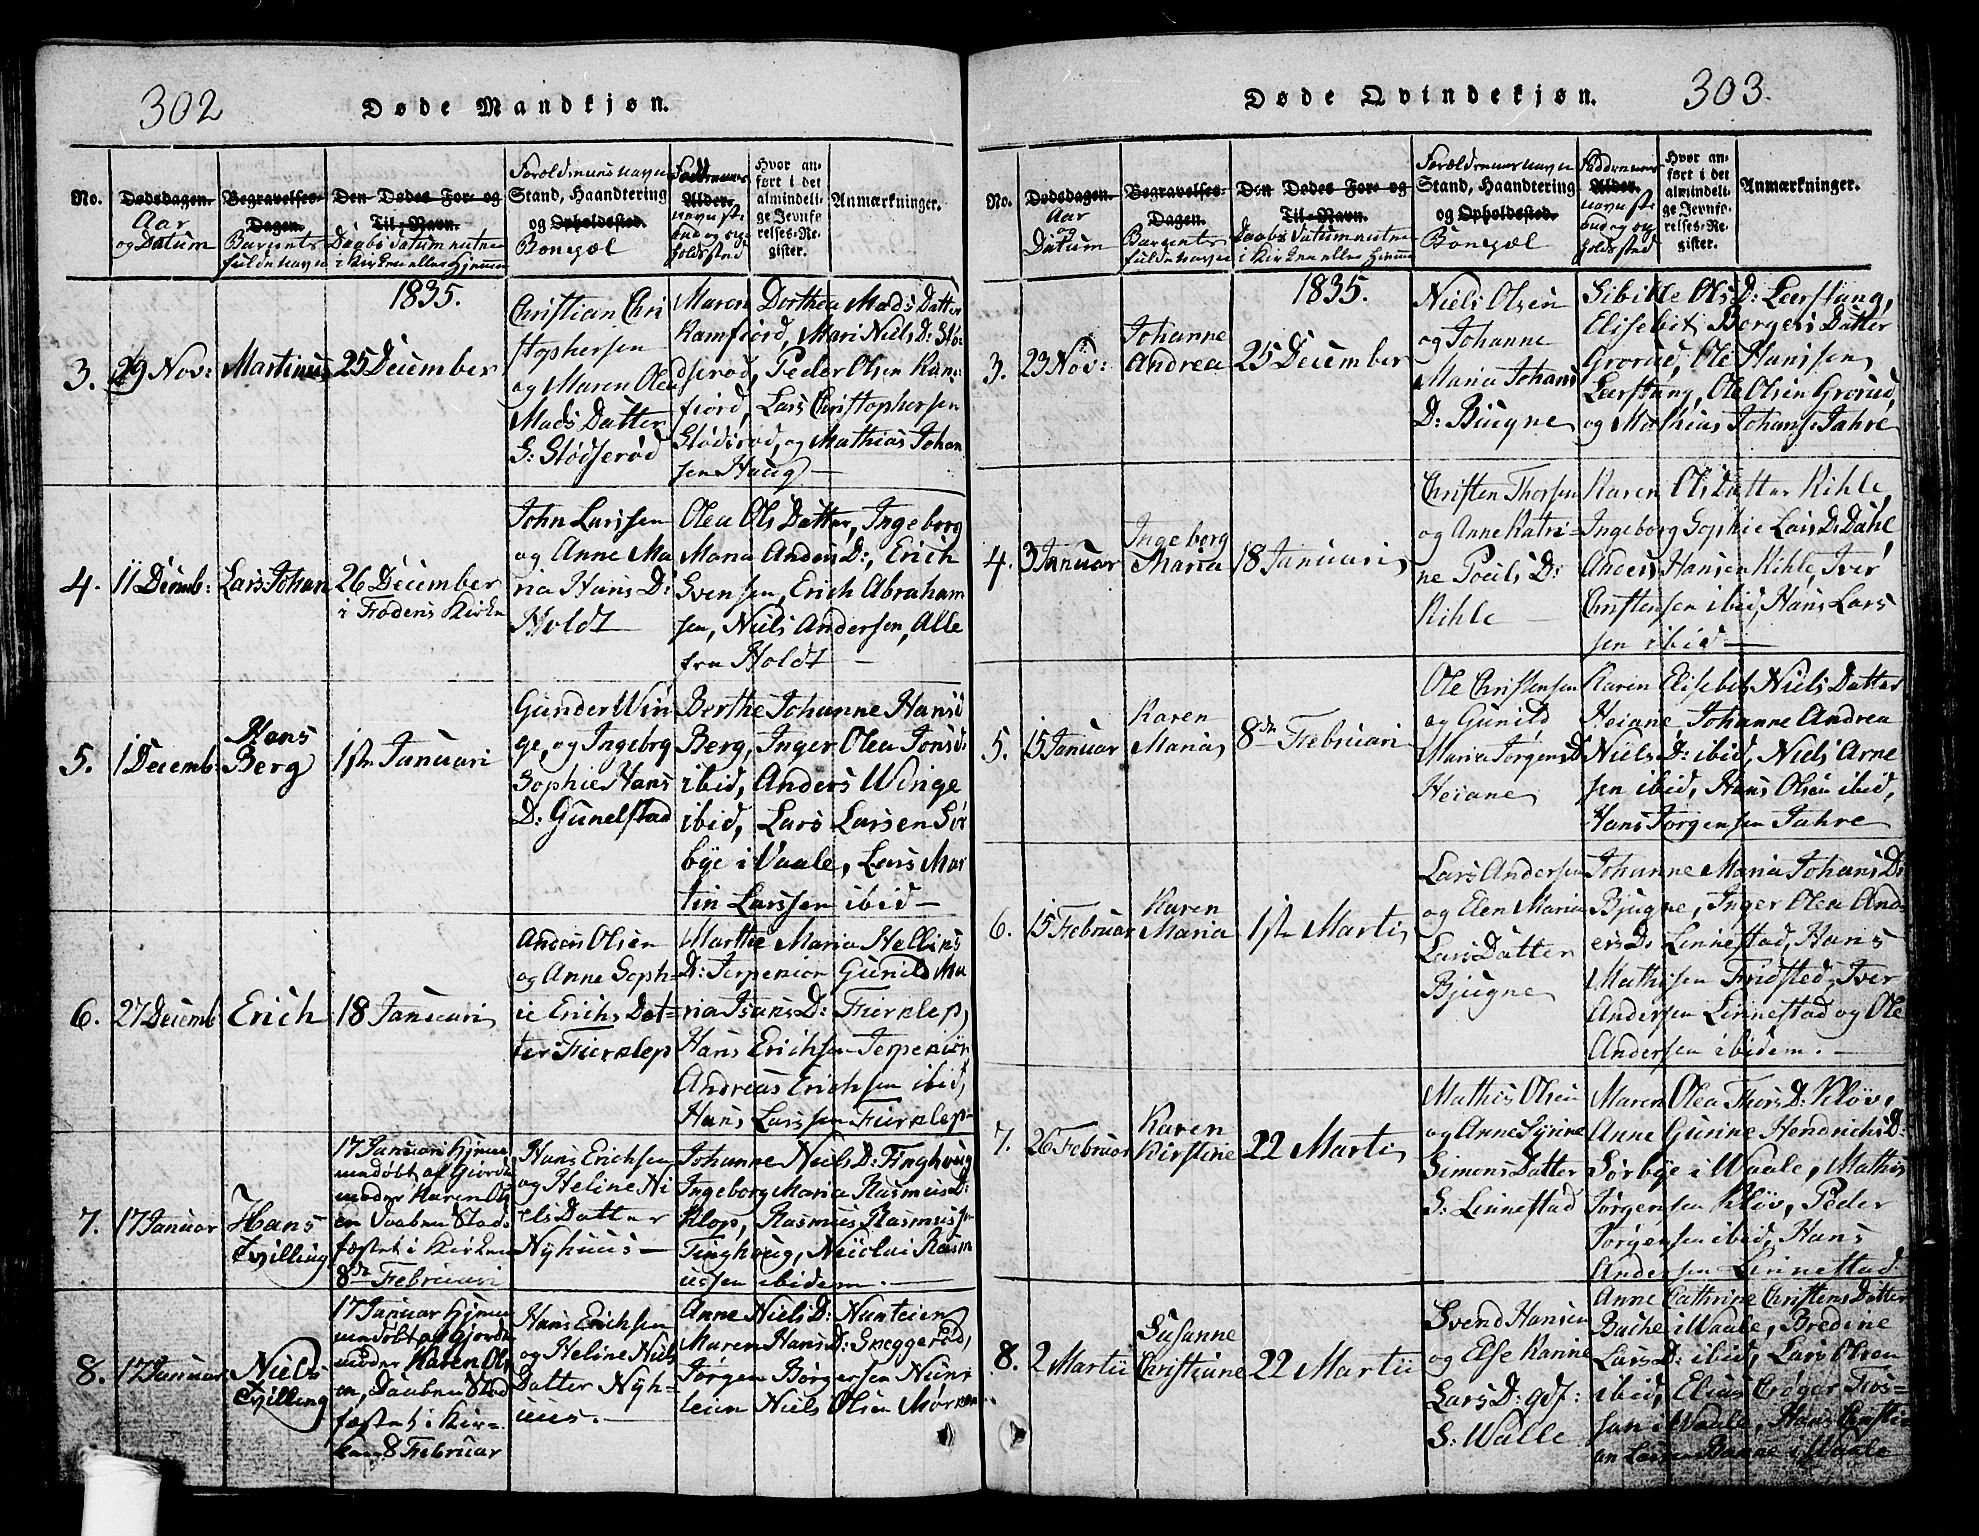 302
Døde Mandkjøn.
No.
Dødsdagen.
Aar
og Datum
Begravelses-
Dagen.
Barnets
fulde navn
Den Dødes For- og
Til-Navn.
Daabs datum
i Kirken eller hjemme
Forældrenes navn
Stand, Haandtering
og Opholdsted.
Bonepæl
Faddernes
Alder.
navn
Hvor an-
ført i det
almindeli-
ge Jevnfø-
relses-Re-
gister.
Anmærkninger.
1835.
3.
29 Nov:
Martinus
25 December
Christian Chri
stophersen
og Maren Olea
Mads Datter
G: Slødserød
Maren Dorthea Mads Datter
Ramfiord, Mari Niels D: Slø-
dserød, Peder Olsen Ram-
fiord, Lars Christophersen
Slødsrød, og Mathias Johan
sen Haug —
4.
11 Decmb:
Lars Johan
26 December
i Frodens Kirke
John Larssen
og Anne Ma
ria Hans D:
Holdt
Olea Ols Datter, Ingeborg
Maria Anders D:, Erich
Svensen, Erich Abraham
sen, Niels Andersen, Alle
fra Holdt —
5.
1 Decemb:
Hans
Berg
1ste Januari
Gunder Win
ge, og Ingeborg
Sophie Hans
D: Gunelstad
Berthe Johanne Hans D
Berg, Inger Olea Jons D:
ibid, Anders Winge
ibid, Lars Larsen Sør
bye i Waale, Lars Mar
tin Larssen ibid —
6.
27 Decemb
Erich
18 Januari
Anders Olsen
og Anne Soph-
ie Erichs Dat-
ter Fierklep
Marthe Maria Hellies
D: Jerpekiör Gunild Ma
ria Isaks D: Fierklep,
Hans Erichsen Jerpekiör
Andreas Erichsen ibid,
Hans Larssen Fierklep —
7.
17 Januar
Hans
Tvilling
17 Januari hjem
medøbt af Giorde
moder Karen Ols
en Daaben Stad-
fæstet i Kirken
8de Februari
Hans Erichsen
og Heline Ni
els Datter
Nyhuus —
Johanne Niels D: Tinghoug
Ingeborg Maria Rasmus D:
Klop, Rasmus Rasmussen
Tinghoug, Nicolai Rasm
ussen ibidem. —
8.
17 Januar
Niels
Tvilling
17 Januar hjem
medøbt af Gjorde
moder Karen Ols
en, Daaben Stad
fæstet i Kir-
ken 8 Februar
Hans Erichsen
og Heline Niels
Datter Nyh-
uus. —
Anne Niels D: Nunteien
Maren Hans D: Sneggerød,
Jørgen Børgersen Nun-
teien Niels Olsen Mørken
303.
Døde Qvindekjøn.
No.
Dødsdagen.
Aar
og
Datum
Begravelses-
Dagen.
Barnets
fulde navn
Den Dødes For- og
Til-Navn.
Daabs datum
i Kirken eller hjemme
Forældrenes navn
Stand, Haandtering
og Opholdsted.
Bonepæl
Faddernes
Alder.
navn
Hvor an-
ført i det
almindeli-
ge Jevnfø-
relses-Re-
gister.
Anmærkninger.
1835.
3.
23 Nov:
Johanne
Andrea
25 December
Niels Olsen
og Johanne
Maria Johans
D: Biugne
Sibille Ols D: Leerstang,
Elisebet Bergers Datter
Grorud, Ole Hanssen
Leerstang, Ole Olsen Grorud,
og Mathias Johans: Jahre
4.
3 Januar
Ingeborg
Maria
18 Januari
Christen Thorsen
og Anne Katri-
ne Poels D:
Kihle
Karen Ols Datter Kihle,
Ingeborg Sophie Lars D: Dahl
Anders Hansen Kihle, Iver
Christensen ibid, Hans Lars
sen ibid —
5.
15 Januar
Karen
Maria
8de Februari
Ole Christensen
og Gunild
Maria Jørgens D
Heiane
Karen Elisebet Niels Datter
Heiane Johanne Andrea
Niels D: ibid, Niels Arne
sen ibid, Hans Olsen ibid,
Hans Jørgensen Jahre
6.
15 Februar
Karen
Maria
1ste Marti
Lars Andersen
og Elen Maria
Lars Datter
Bjugne
Johanne Maria Johans D:
Bjugne, Inger Olea And-
ers D: Linnestad, Hans
Mathisen Fredsted, Iver
Andersen Linnestad og Ole
Andersen ibidem. —
7.
26 Februar
Karen
Kirstine
22 Marti
Mathis Olsen
og Anne Syrine
Simons Datter
S: Linnestad
Maren Olea Thors D: Kløv,
Anne Gurine Hendrichs D:
Sørbye i Waale, Mathis
Jørgensen Kløv, Peder
Jørgensen ibid, Hans
Andersen Linnestad
8.
2 Martii
Susanne
Christiane
22 Martii
Svend Hansen
og Else Karine
Lars D: gdf:
S: Walle
Anne Cathrine Christens Datter
Bache i Waale, Bredine
Lars D: ibid, Lars Olsen
ibid, Elias Crøger Fros-
san i Waale, Hans Christi-
an Larsen Banne i Waale